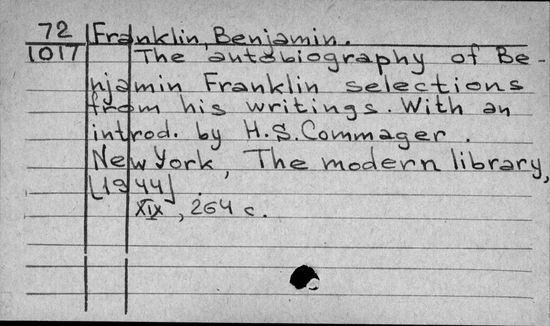 72 Franklin, Benjamin.
1017 The autobiography of Be-
njamin Franklin selections
from his writings. With an
introd. by H.S. Commager.
New York, The modern library,
[1944].
XIX, 264 c.